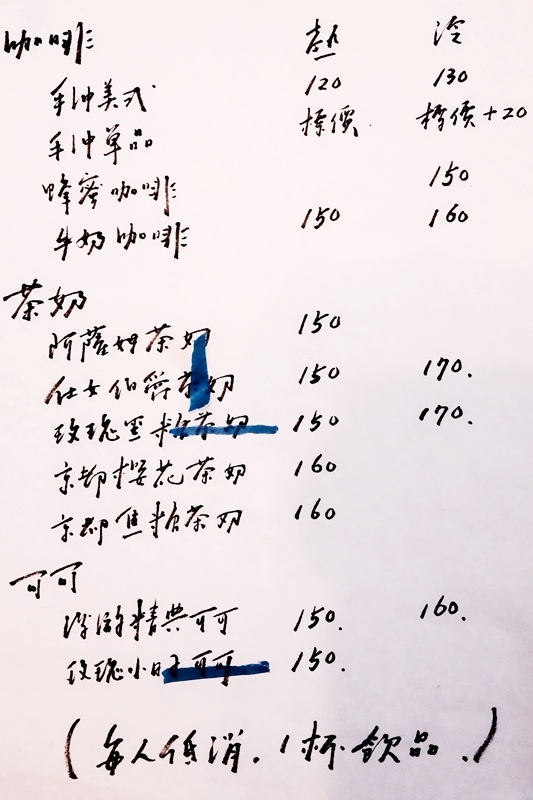 咖啡 熱 冷
手沖美式 120 130
手沖單品 標價 標價+20
蜂蜜咖啡 150
牛奶咖啡 150 160
茶奶
阿薩姆茶奶 150
仕女伯爵茶奶 150 170.
玫瑰黑糖茶奶 150 170.
京都櫻花茶奶 160
京都焦糖茶奶 160
可可
浮游精典可可 150. 160.
玫瑰小日子可可 150.
(每人低消.1杯飲品.)